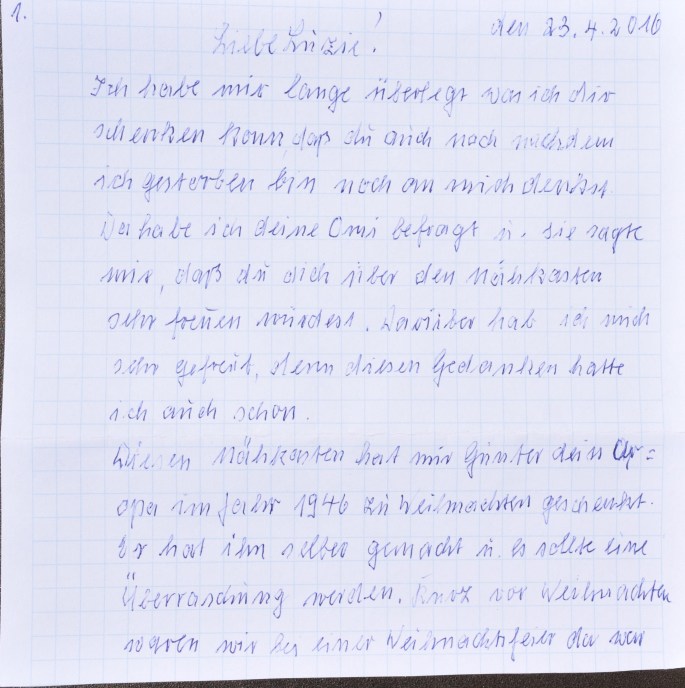 1.
den 23.4.2016
Liebe Luzie!
Ich habe mir lange überlegt was ich dir
schenken kann, daß du auch noch nachdem
ich gestorben bin noch an mich denkst
Da habe ich deine Omi befragt u. sie sagte
mir, daß du dich über den Nähkasten
sehr freuen würdest. Darüber hab ich mich
sehr gefreut, denn diesen Gedanken hatte
ich auch schon.
Diesen Nähkasten hat mir Günter dein Ur=
opa im Jahr 1946 zu Weihnachten geschenkt.
Er hat ihn selber gemacht u. es sollte eine
Überraschung werden. Kurz vor Weihnachten
waren wir bei einer Weihnachtsfeier da war